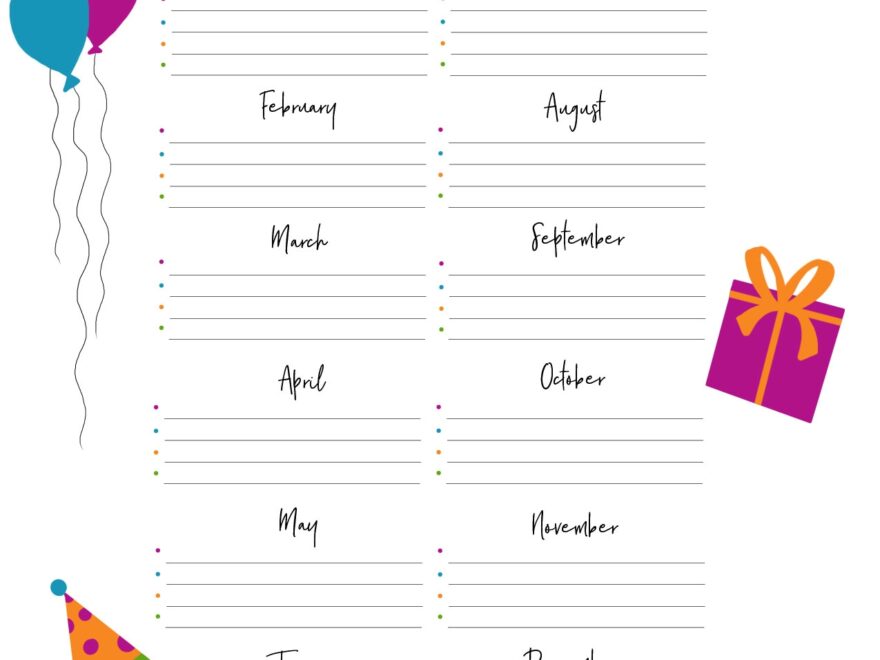 February
August
March
September
April
October
May
November